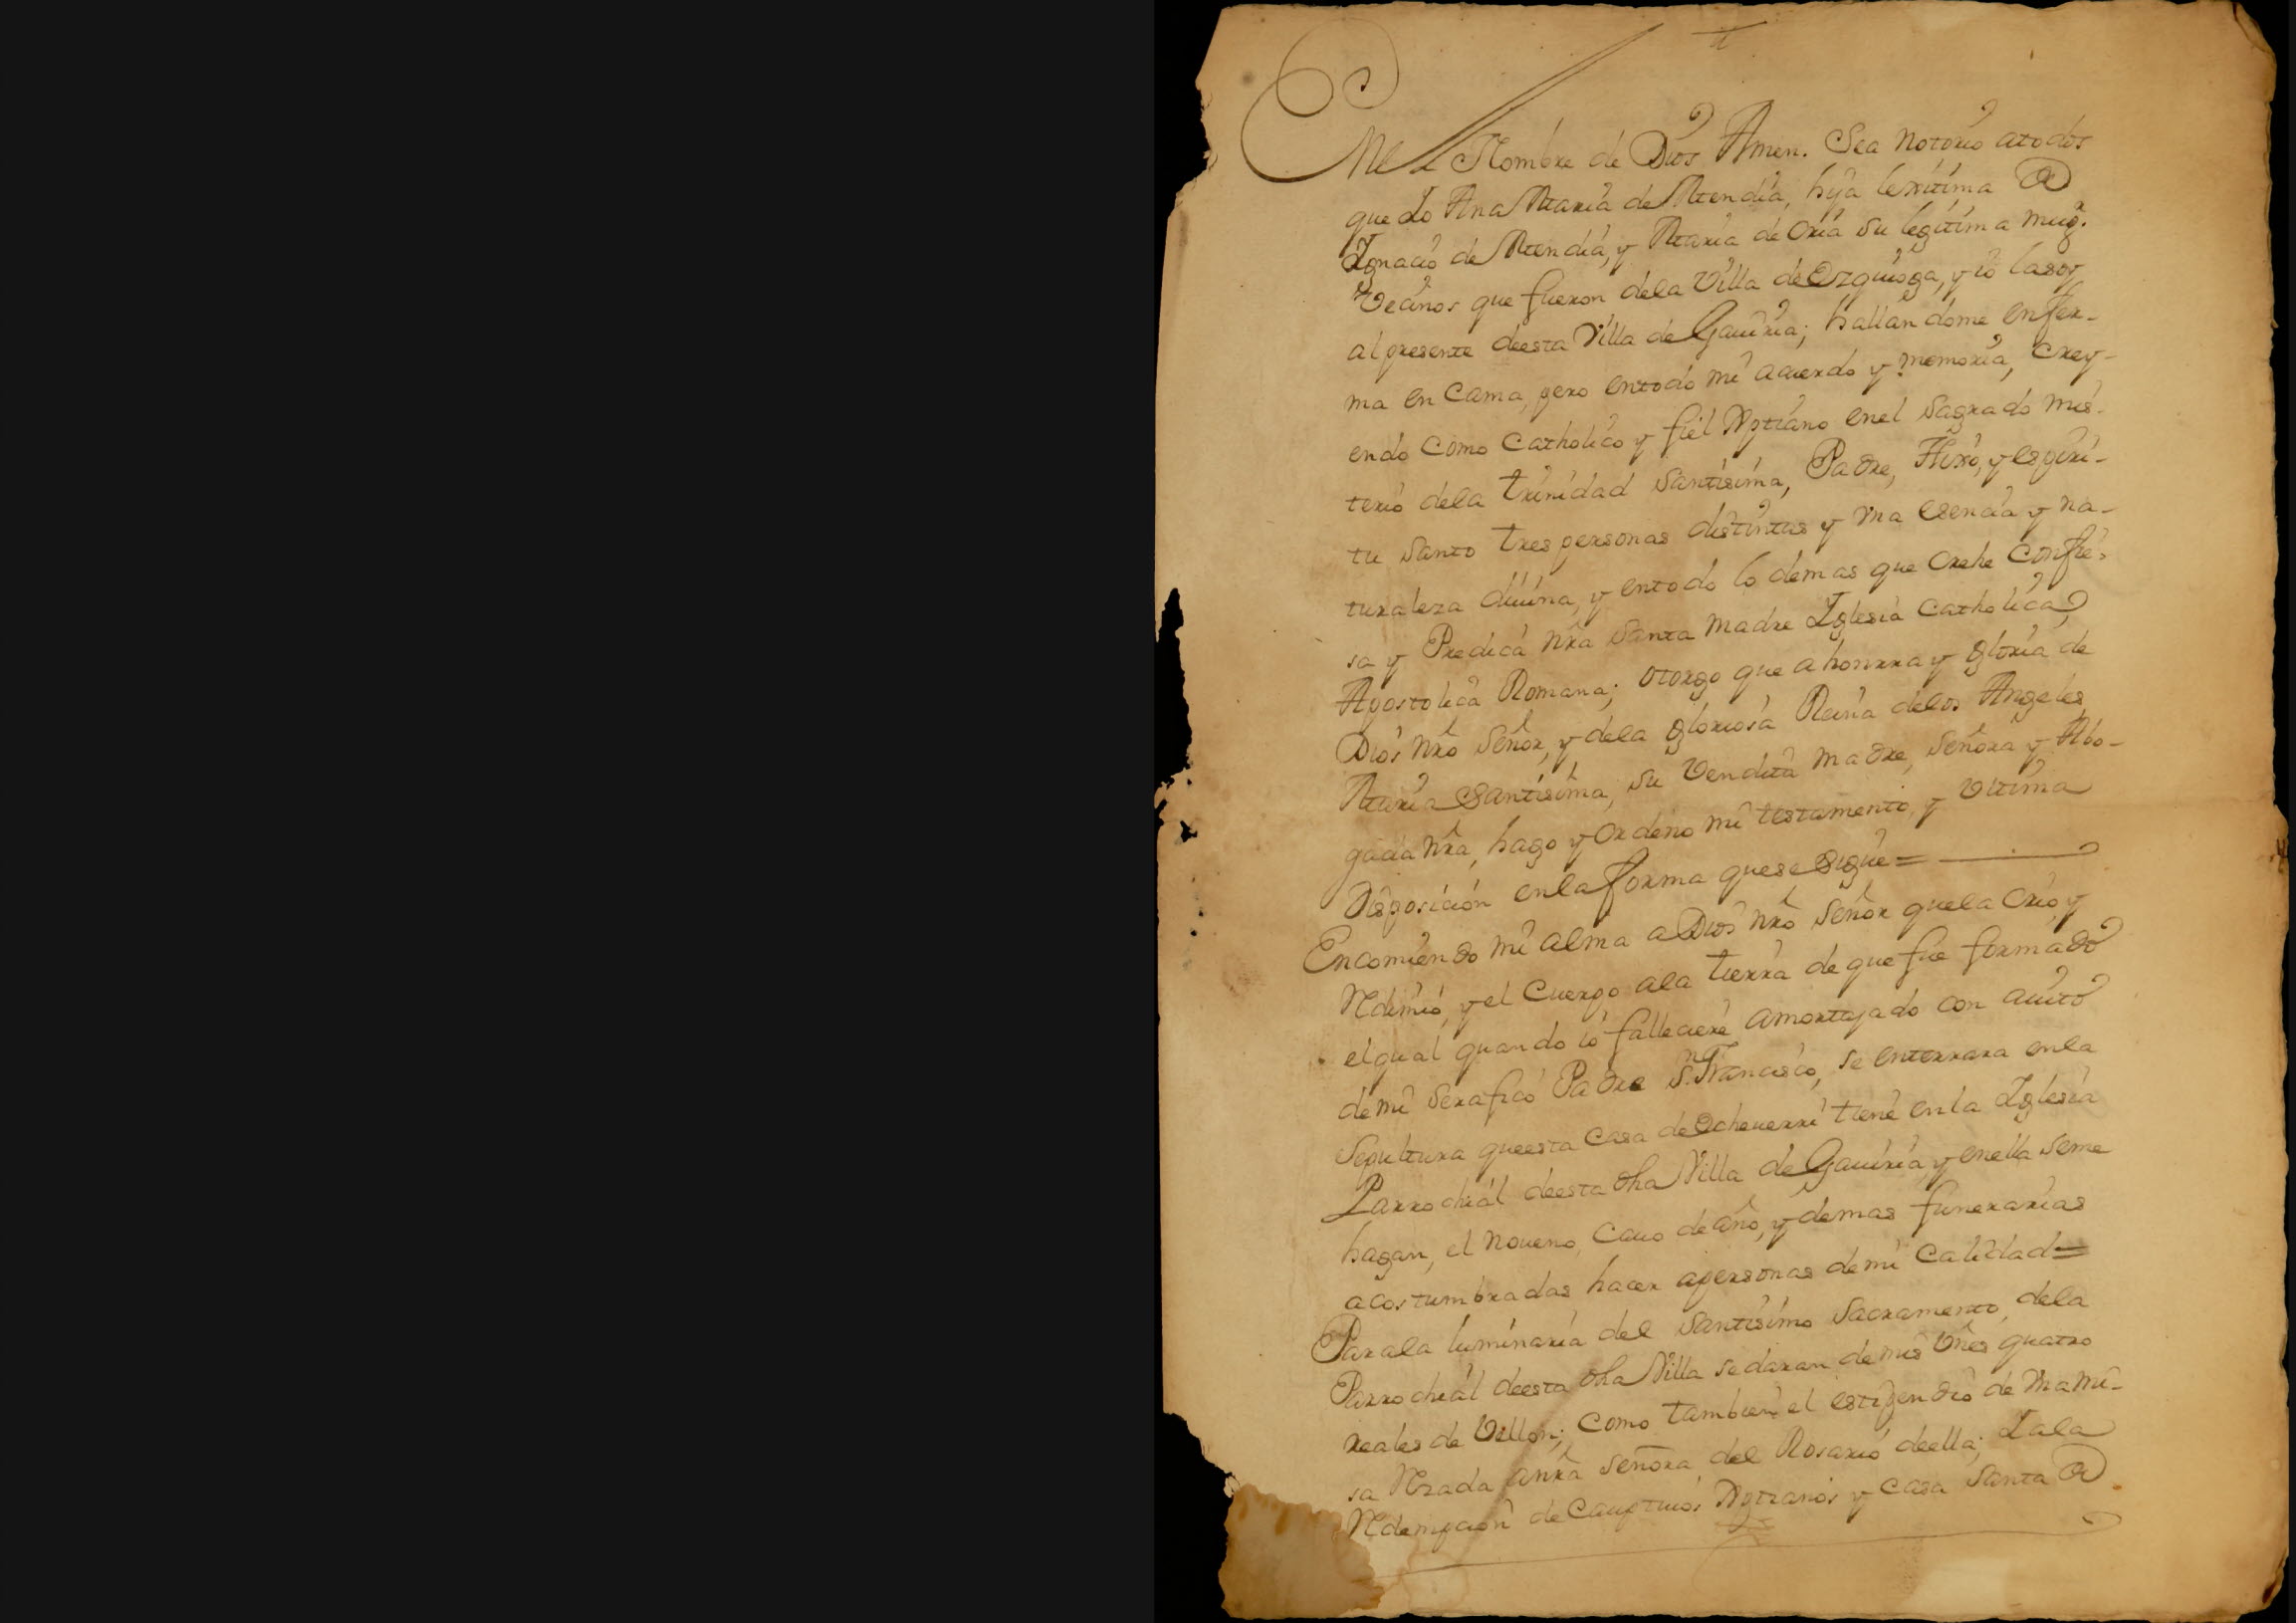 En el Nombre de Dios Amen. Sea notorio atodos
que Io Ana Maria de Mendia, hija lexitima de
Ignacio de Mendia, y Maria de Oria su legitima mug.
Vecinos que fueron dela Villa de Ezquioga, y io lasoy
alpresente deesta Villa de Gauiria; hallandome enfer-
ma en Cama, pero entodo mi acuerdo y memoria, crey-
endo como Catholico y fiel Xptiano enel sagrado mis-
terio dela trinidad santisima, Padre, Hixo, y espiri-
tu santo tres personas distintas y vna esencia y na-
turaleza diuina, y entodo lo demas que crehe Confie-
sa y Predica nrã santa madre Iglesia Catholica,
Apostolica Romana; otorgo que a honrra y gloria de
Dios nrõ señor, y dela gloriosa Reina delos Angeles
Maria santisima, su Vendita madre, señora y Abo-
gada nrã, hago y ordeno mi testamento, y vltima
Disposicion enla forma quese sigue =
Encomiendo mi alma a Dios nrõ señor quela Crio, y
Redimio, y el Cuerpo ala tierra de que fue formado
elqual quando io falleciere amortajado con auito
de mi serafico Padre s.n Francisco, se enterrara enla
sepultura queesta Casa de Echeuerri tiene en la Iglesia
Parrochial deesta dha Villa de Gauiria, y enella seme
hagan, el noueno, Cauo de año, y demas funerarias
acostumbradas hacer apersonas demi calidad =
Parala luminaria del santisimo sacramento, dela
Parrochial deesta dha Villa sedaran de mis vnes quatro
reales de Vellon; como tambien el estipendio de vna mi-
sa Rezada anrã señora del Rosario deella; Iala
Redempcion de Cauptiuos Xptianos y casa santa de